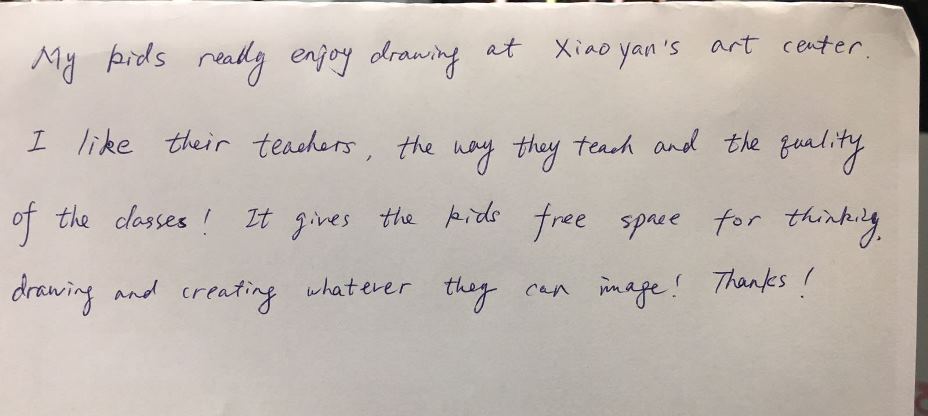 My kids really enjoy drawing at Xiao yan's art center.
I like their teachers, the way they teach and the quality
of the classes! It gives the kids free space for thinking,
drawing and creating whatever they can image! Thanks!